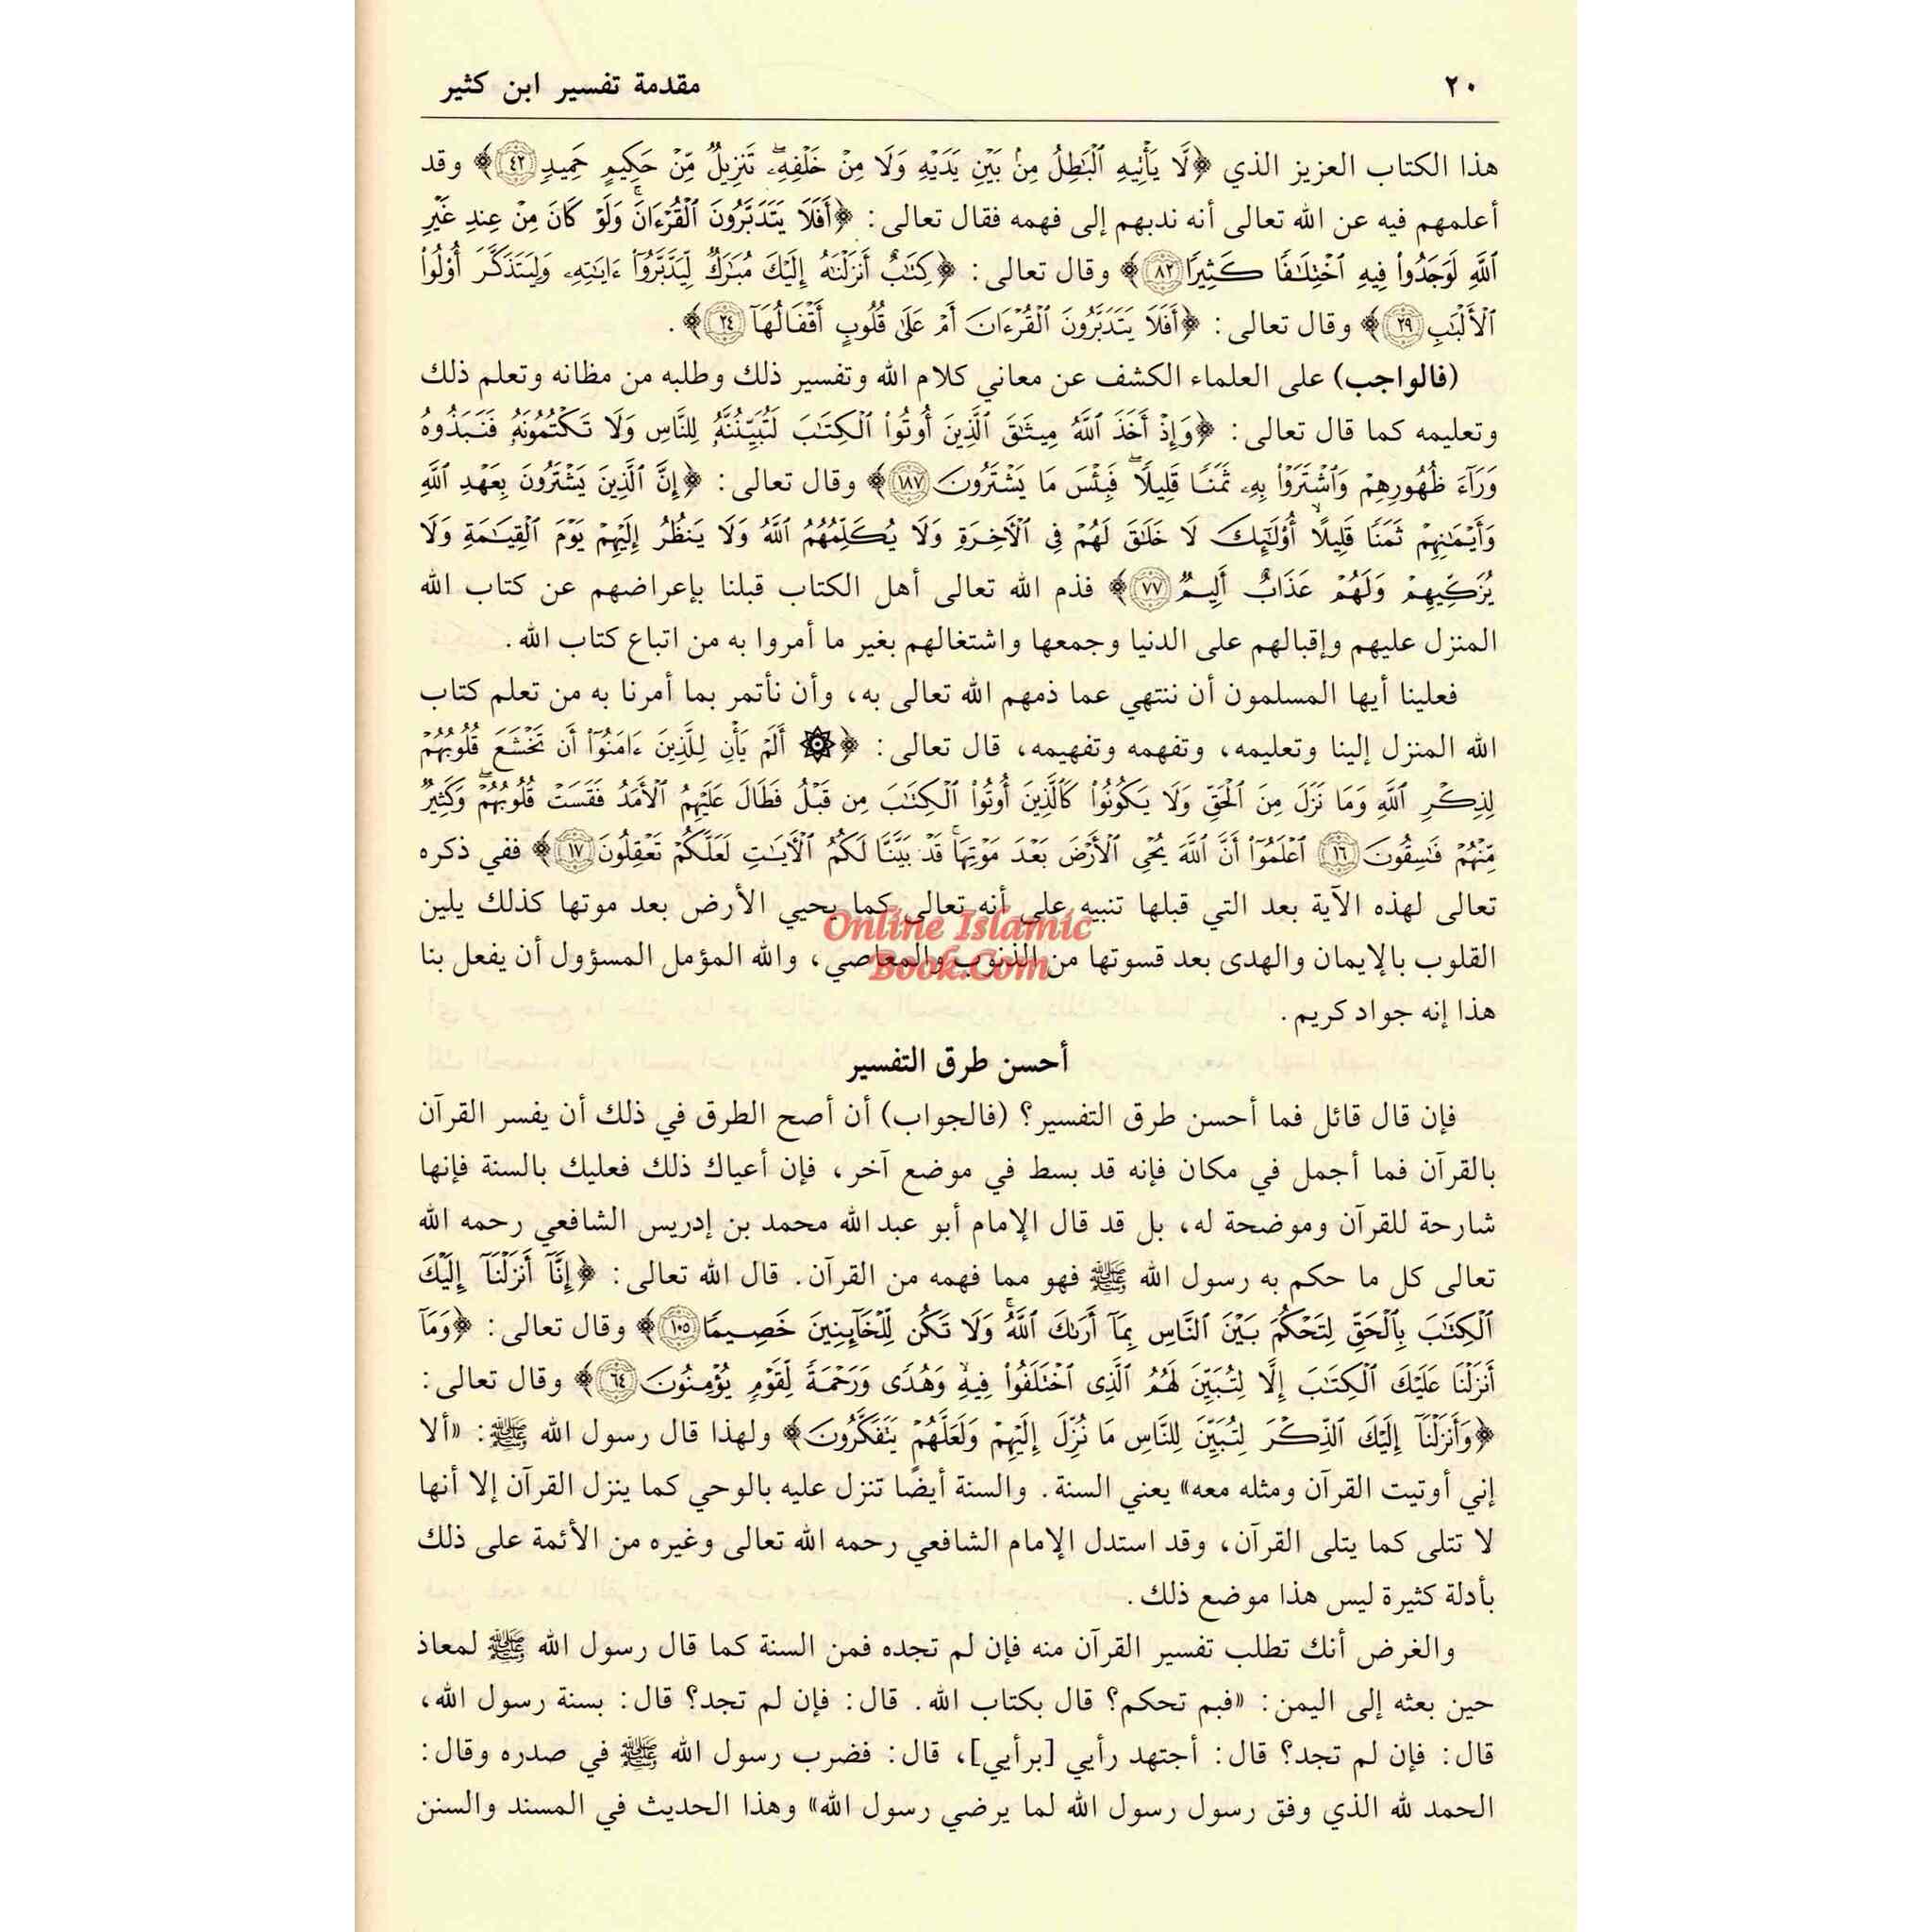 ٢٠ مقدمة تفسير ابن كثير
هذا الكتاب العزيز الذي ﴿لَّا يَأْتِيهِ ٱلْبَٰطِلُ مِنۢ بَيْنِ يَدَيْهِ وَلَا مِنْ خَلْفِهِۦۖ تَنزِيلٌ مِّنْ حَكِيمٍ حَمِيدٍ ٤٢﴾ وقد
أعلمهم فيه عن الله تعالى أنه ندبهم إلى فهمه فقال تعالى: ﴿أَفَلَا يَتَدَبَّرُونَ ٱلْقُرْءَانَۚ وَلَوْ كَانَ مِنْ عِندِ غَيْرِ
ٱللَّهِ لَوَجَدُوا۟ فِيهِ ٱخْتِلَٰفًا كَثِيرًا ٨٢﴾ وقال تعالى: ﴿كِتَٰبٌ أَنزَلْنَٰهُ إِلَيْكَ مُبَٰرَكٌ لِّيَدَّبَّرُوٓا۟ ءَايَٰتِهِۦ وَلِيَتَذَكَّرَ أُو۟لُوا۟
ٱلْأَلْبَٰبِ ٢٩﴾ وقال تعالى: ﴿أَفَلَا يَتَدَبَّرُونَ ٱلْقُرْءَانَ أَمْ عَلَىٰ قُلُوبٍ أَقْفَالُهَآ ٢٤﴾.
(فالواجب) على العلماء الكشف عن معاني كلام الله وتفسير ذلك وطلبه من مظانه وتعلم ذلك
وتعليمه كما قال تعالى: ﴿وَإِذْ أَخَذَ ٱللَّهُ مِيثَٰقَ ٱلَّذِينَ أُوتُوا۟ ٱلْكِتَٰبَ لَتُبَيِّنُنَّهُۥ لِلنَّاسِ وَلَا تَكْتُمُونَهُۥ فَنَبَذُوهُ
وَرَآءَ ظُهُورِهِمْ وَٱشْتَرَوْا۟ بِهِۦ ثَمَنًا قَلِيلًاۖ فَبِئْسَ مَا يَشْتَرُونَ ١٨٧﴾ وقال تعالى: ﴿إِنَّ ٱلَّذِينَ يَشْتَرُونَ بِعَهْدِ ٱللَّهِ
وَأَيْمَٰنِهِمْ ثَمَنًا قَلِيلًا أُو۟لَٰٓئِكَ لَا خَلَٰقَ لَهُمْ فِى ٱلْءَاخِرَةِ وَلَا يُكَلِّمُهُمُ ٱللَّهُ وَلَا يَنظُرُ إِلَيْهِمْ يَوْمَ ٱلْقِيَٰمَةِ وَلَا
يُزَكِّيهِمْ وَلَهُمْ عَذَابٌ أَلِيمٌ ٧٧﴾ فذم الله تعالى أهل الكتاب قبلنا بإعراضهم عن كتاب الله
المنزل عليهم وإقبالهم على الدنيا وجمعها واشتغالهم بغير ما أمروا به من اتباع كتاب الله.
فعلينا أيها المسلمون أن ننتهي عما ذمهم الله تعالى به، وأن نأتمر بما أمرنا به من تعلم كتاب
الله المنزل إلينا وتعليمه، وتفهمه وتفهيمه، قال تعالى: ﴿۞ أَلَمْ يَأْنِ لِلَّذِينَ ءَامَنُوٓا۟ أَن تَخْشَعَ قُلُوبُهُمْ
لِذِكْرِ ٱللَّهِ وَمَا نَزَلَ مِنَ ٱلْحَقِّ وَلَا يَكُونُوا۟ كَٱلَّذِينَ أُوتُوا۟ ٱلْكِتَٰبَ مِن قَبْلُ فَطَالَ عَلَيْهِمُ ٱلْأَمَدُ فَقَسَتْ قُلُوبُهُمْۖ وَكَثِيرٌ
مِّنْهُمْ فَٰسِقُونَ ١٦ ٱعْلَمُوٓا۟ أَنَّ ٱللَّهَ يُحْىِ ٱلْأَرْضَ بَعْدَ مَوْتِهَاۚ قَدْ بَيَّنَّا لَكُمُ ٱلْءَايَٰتِ لَعَلَّكُمْ تَعْقِلُونَ ١٧﴾ ففي ذكره
تعالى لهذه الآية بعد التي قبلها تنبيه على أنه تعالى كما يحيي الأرض بعد موتها كذلك يلين
القلوب بالإيمان والهدى بعد قسوتها من الذنوب والمعاصي، والله المؤمل المسؤول أن يفعل بنا
هذا إنه جواد كريم.
Online Islamic
Book.Com
أحسن طرق التفسير
فإن قال قائل فما أحسن طرق التفسير؟ (فالجواب) أن أصح الطرق في ذلك أن يفسر القرآن
بالقرآن فما أجمل في مكان فإنه قد بسط في موضع آخر، فإن أعياك ذلك فعليك بالسنة فإنها
شارحة للقرآن وموضحة له، بل قد قال الإمام أبو عبد الله محمد بن إدريس الشافعي رحمه الله
تعالى كل ما حكم به رسول الله ﷺ فهو مما فهمه من القرآن. قال الله تعالى: ﴿إِنَّآ أَنزَلْنَآ إِلَيْكَ
ٱلْكِتَٰبَ بِٱلْحَقِّ لِتَحْكُمَ بَيْنَ ٱلنَّاسِ بِمَآ أَرَىٰكَ ٱللَّهُۚ وَلَا تَكُن لِّلْخَآئِنِينَ خَصِيمًا ١٠٥﴾ وقال تعالى: ﴿وَمَآ
أَنزَلْنَا عَلَيْكَ ٱلْكِتَٰبَ إِلَّا لِتُبَيِّنَ لَهُمُ ٱلَّذِى ٱخْتَلَفُوا۟ فِيهِ وَهُدًى وَرَحْمَةً لِّقَوْمٍ يُؤْمِنُونَ ٦٤﴾ وقال تعالى:
﴿وَأَنزَلْنَآ إِلَيْكَ ٱلذِّكْرَ لِتُبَيِّنَ لِلنَّاسِ مَا نُزِّلَ إِلَيْهِمْ وَلَعَلَّهُمْ يَتَفَكَّرُونَ﴾ ولهذا قال رسول الله ﷺ: «ألا
إني أوتيت القرآن ومثله معه» يعني السنة. والسنة أيضًا تنزل عليه بالوحي كما ينزل القرآن إلا أنها
لا تتلى كما يتلى القرآن، وقد استدل الإمام الشافعي رحمه الله تعالى وغيره من الأئمة على ذلك
بأدلة كثيرة ليس هذا موضع ذلك.
والغرض أنك تطلب تفسير القرآن منه فإن لم تجده فمن السنة كما قال رسول الله ﷺ لمعاذ
حين بعثه إلى اليمن: «فبم تحكم؟ قال بكتاب الله. قال: فإن لم تجد؟ قال: بسنة رسول الله،
قال: فإن لم تجد؟ قال: أجتهد رأيي [برأيي]، قال: فضرب رسول الله ﷺ في صدره وقال:
الحمد لله الذي وفق رسول رسول الله لما يرضي رسول الله» وهذا الحديث في المسند والسنن